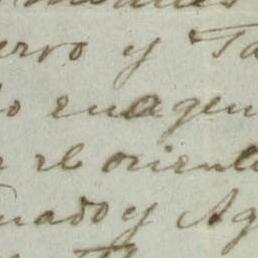 ervo y Ta
o enagen
r el oriente
nado y Ag